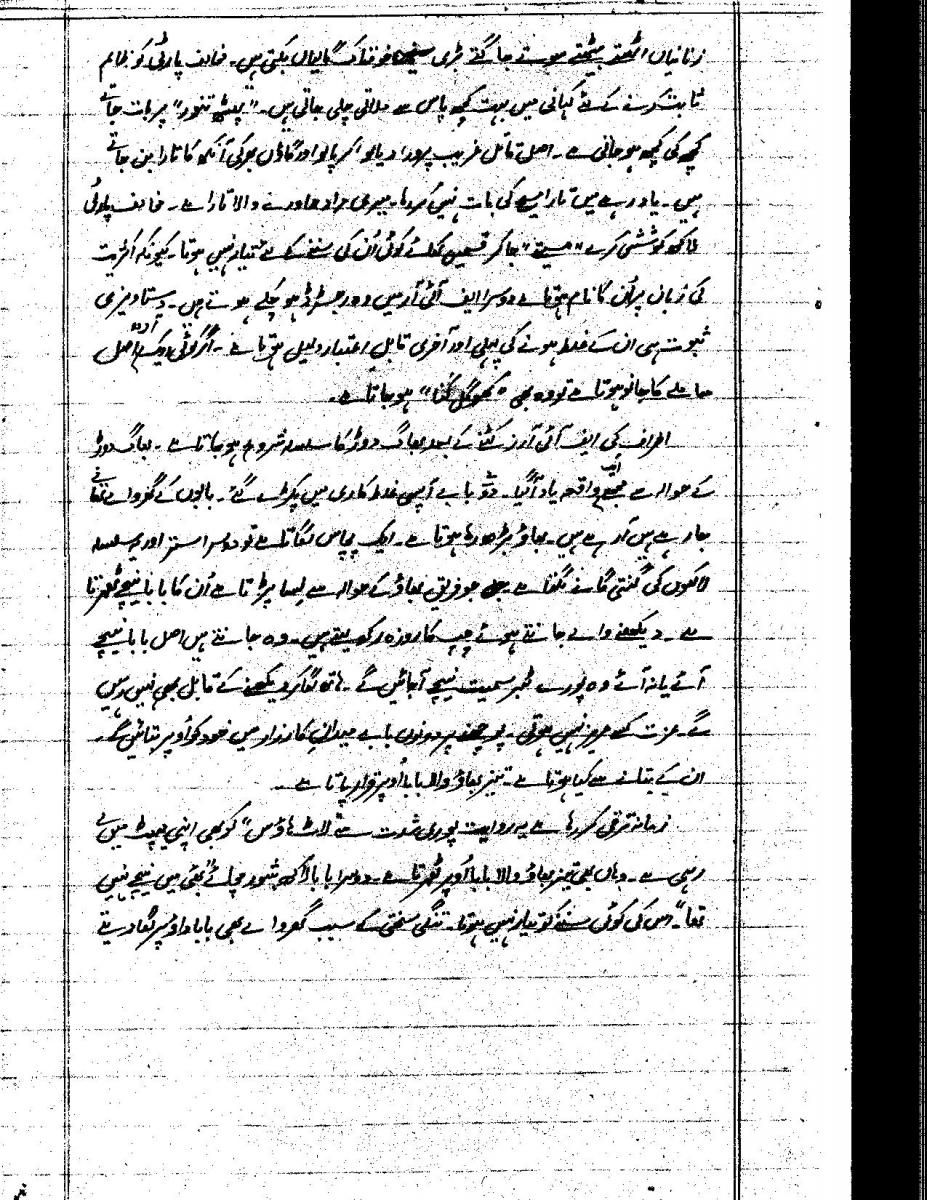 زنانیاں اٹھتے بیٹھتے سوتے جاگتے بڑی خوفناک گالیاں بکتی ہیں۔ مخالف پارٹی کو ظالم
ثابت کرنے کے لئے کہانی میں بہت کچھ پاس سے ملاتی چلی جاتی ہیں۔ "پیلے تنور" پر بات جاتے
کچھ کی کچھ ہو جاتی ہے۔ اصل قاتل غریب پرور، دیالو، کرپالو اور گاؤں بھر کی آنکھ کا تارا بن جاتے
ہیں۔ یاد رہے میں تارا مسیح کی بات نہیں کر رہا۔ میری مراد محاورے والا تارا ہے۔ مخالف پارٹی
لاکھ کوشش کرے "مسیتے" جا کر قسمیں کھائے کوئی اُن کی سننے کے لئے تیار نہیں ہوتا۔ کیونکہ اکثریت
کی زبان پر اُن کا نام ہوتا ہے دوسرا ایف آئی آر میں وہ رجسٹرڈ ہو چکے ہوتے ہیں۔ دستاویزی
ثبوت ہی ان کے غلط ہونے کی پہلی اور آخری قابلِ اعتبار دلیل ہوتا ہے۔ اگر کوئی ایک آدھ اصل
معاملے کا جانو ہوتا ہے تو وہ بھی "گھوگل کنا" ہو جاتا ہے۔
اطراف کی ایف آئی آرز کٹنے کے بعد بھاگ دوڑ کا سلسلہ شروع ہو جاتا ہے۔ بھاگ دوڑ
کے حوالے سے مجھے ایک واقعہ یاد آ گیا۔ دو بابے آپسی غلط کاری میں پکڑے گئے۔ بابوں کے گھر والے تھانے
جا رہے ہیں آ رہے ہیں۔ بھاؤ بڑھ رہا ہوتا ہے۔ ایک پچاس لگاتا ہے تو دوسرا ستر اور یہ سلسلہ
لاکھوں کی گنتی گاننے لگتا ہے۔ جو فریق بھاؤ کے حوالے سے لسا پڑتا ہے اُن کا بابا نیچے ٹھہرتا
ہے۔ دیکھنے والے جانتے ہوئے چپ کا روزہ رکھ لیتے ہیں۔ وہ جانتے ہیں اصل بابا نیچے
آئے یا نہ آئے وہ پورے ٹبر سمیت نیچے آ جائیں گے۔ ہاتھ لگا کر دیکھنے کے قابل بھی نہیں رہیں
گے۔ عزت کسے عزیز نہیں ہوتی۔ پوچھنے پر دونوں بابے میدانِ کارزار میں خود کو اُوپر بتائیں گے۔
ان کے بتانے سے کیا ہوتا ہے۔ تیز بھاؤ والا بابا اُوپر قرار پاتا ہے۔
زمانہ ترقی کر رہا ہے یہ روایت پوری شدت سے "لاٹ ہاؤس" کو بھی اپنی لپیٹ میں لے
رہی ہے۔ وہاں بھی تیز بھاؤ والا بابا اُوپر ٹھہرتا ہے۔ دوسرا بابا لاکھ شور مچائے "بھئی میں نیچے نہیں
تھا"۔ اس کی کوئی سننے کو تیار نہیں ہوتا۔ تنگی سختی کے سبب گھر والے بھی بابا داؤ پر لگا دیتے